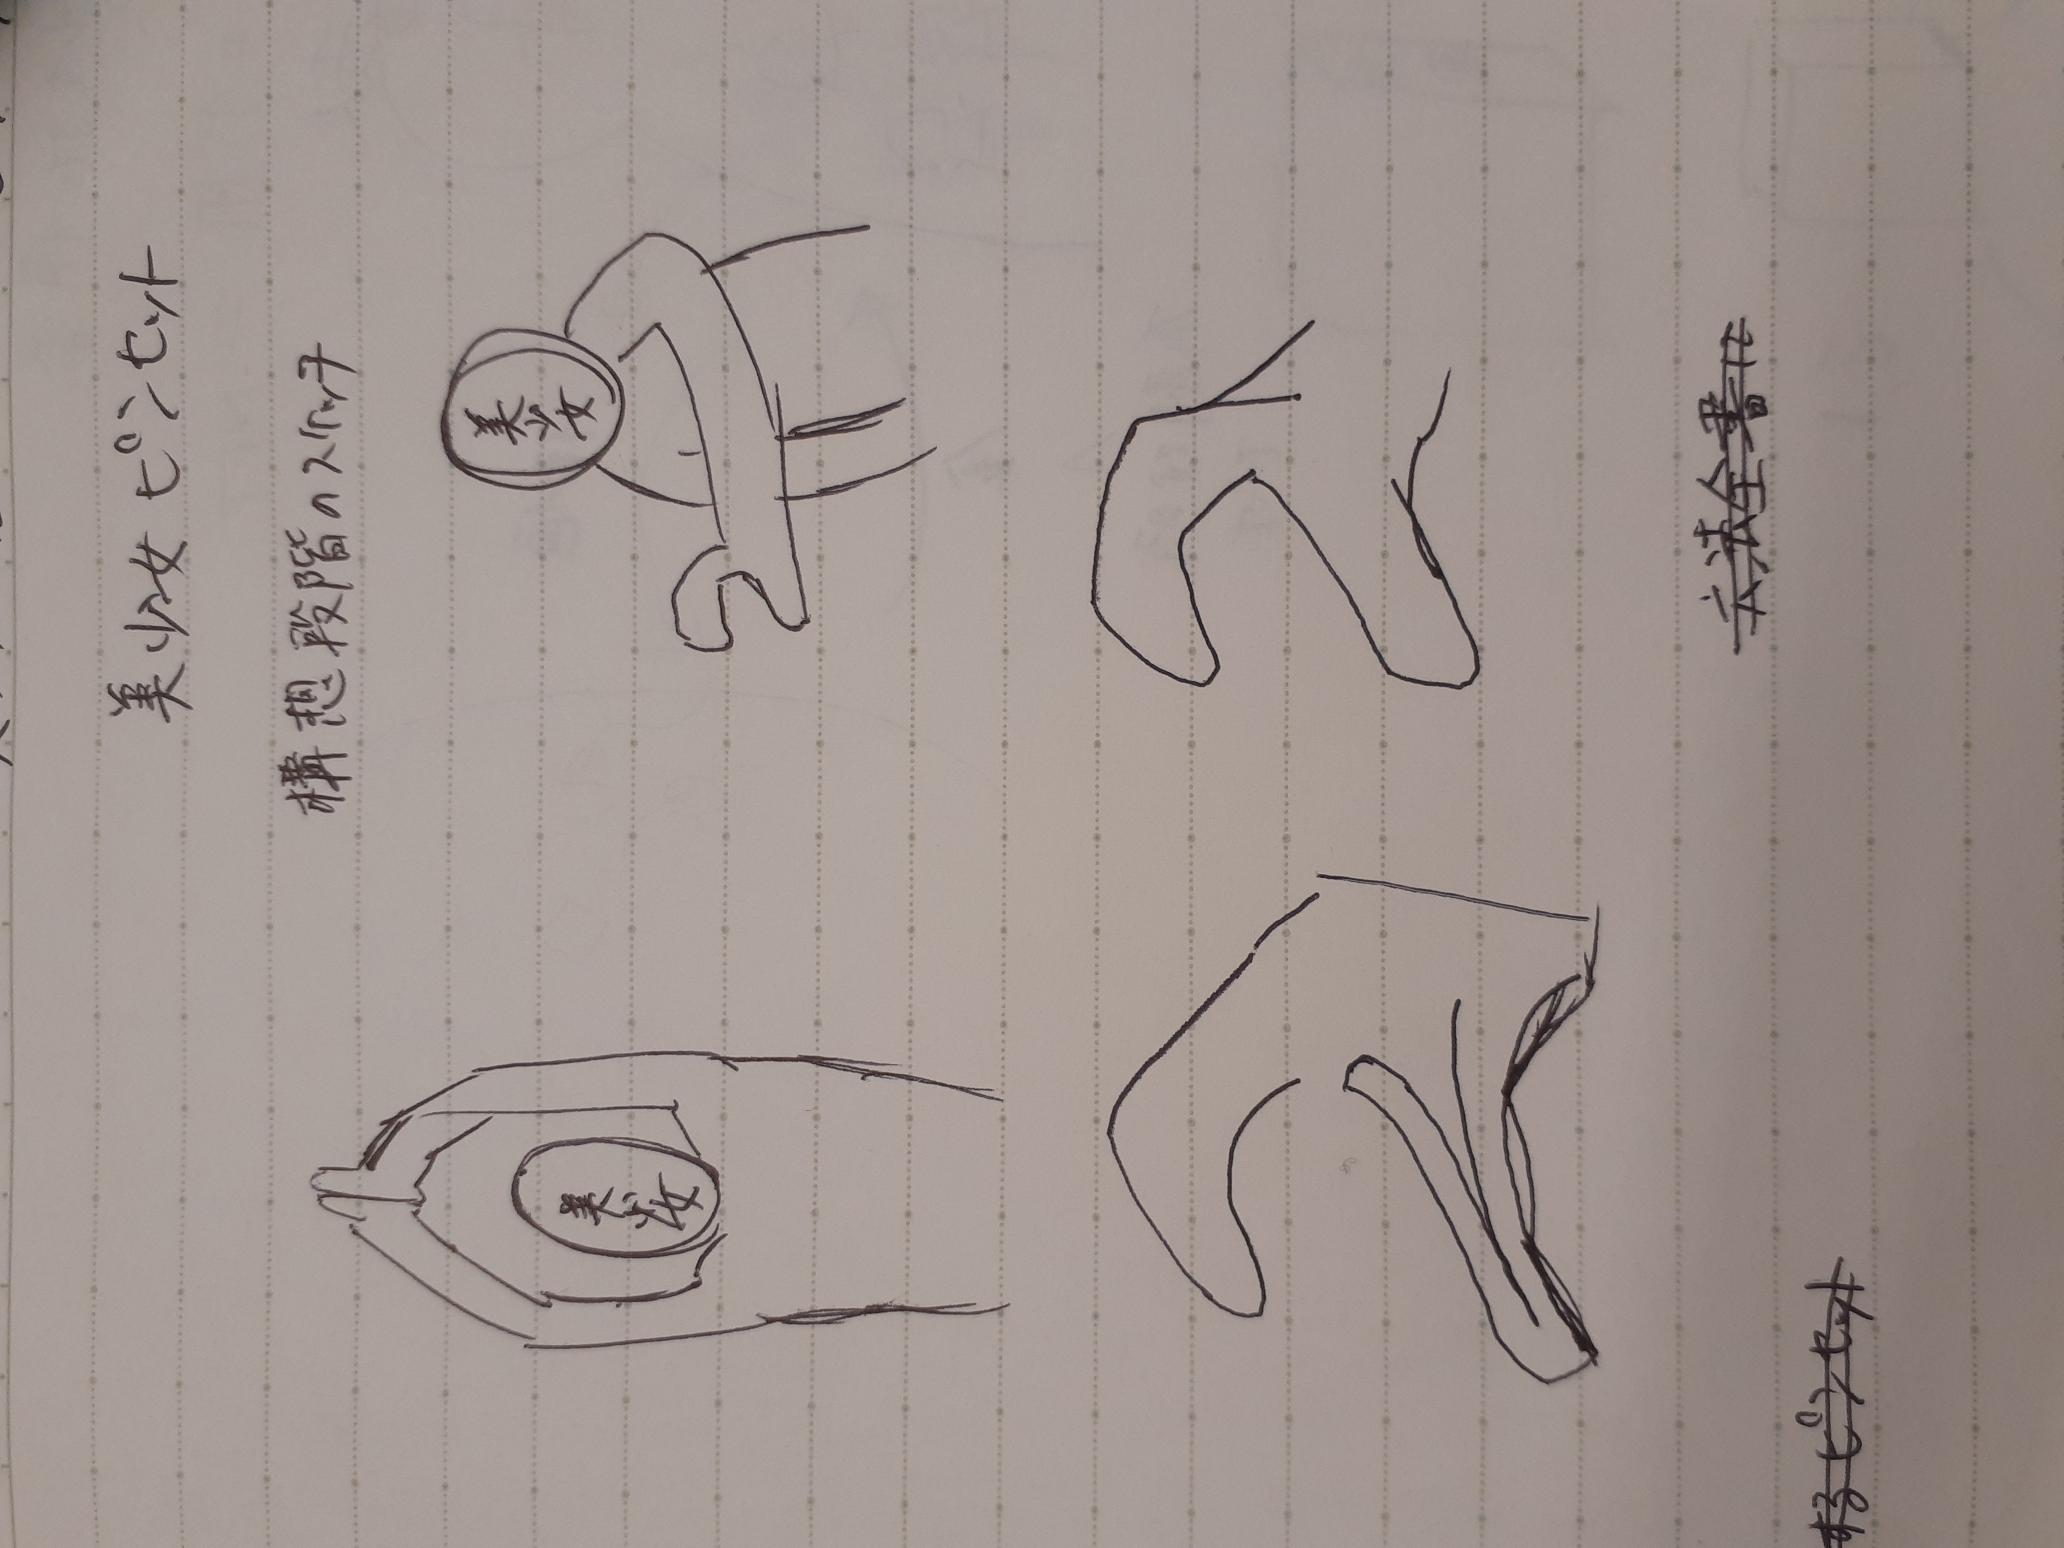 美少女ピンセット
構想段階のスケッチ
美少女
美少女
六法全書に
するピンセット